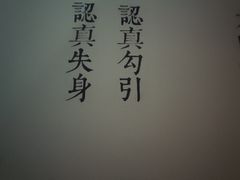 認真勾引
認真失身